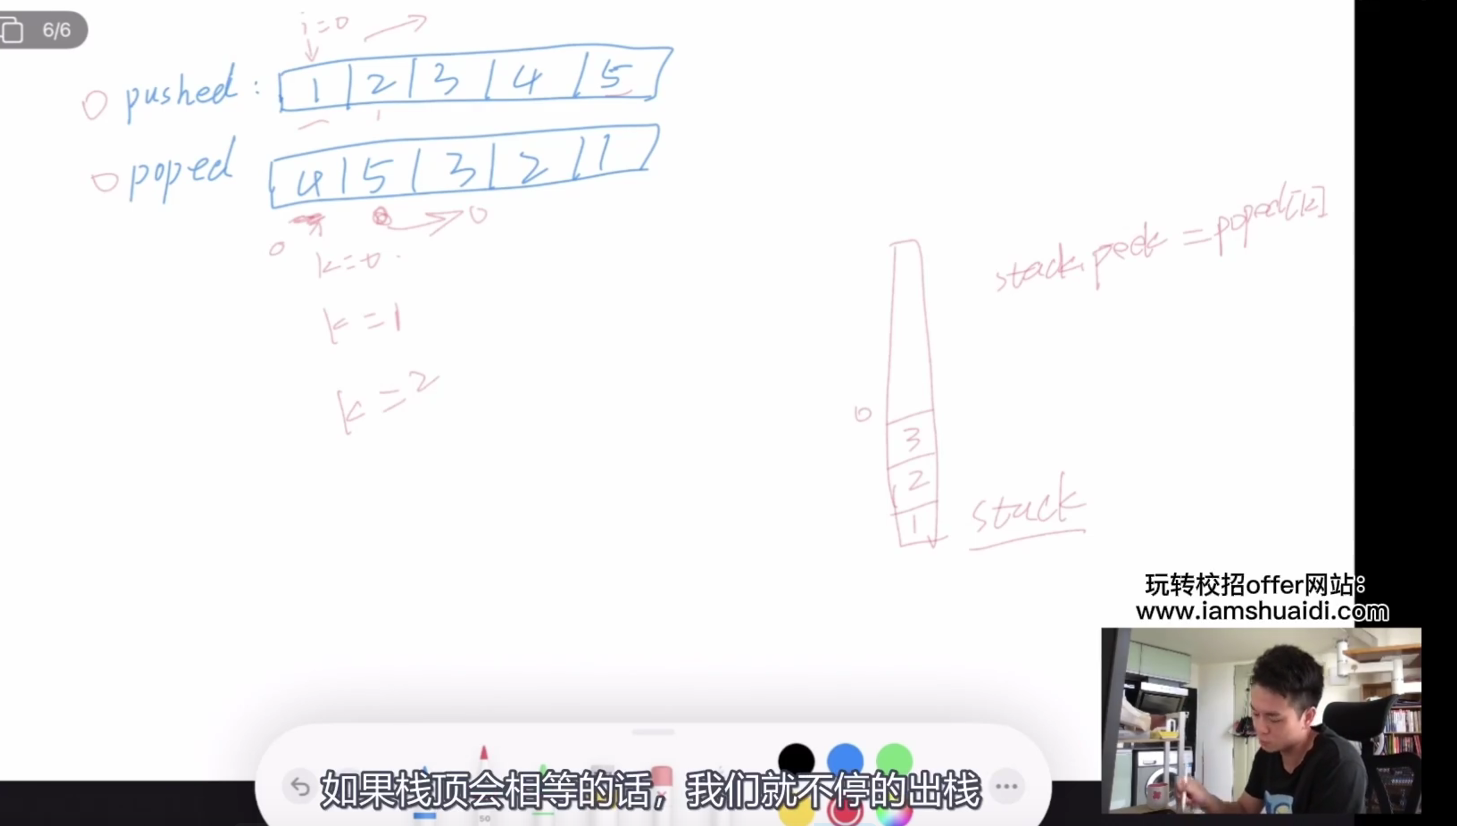 6/6
i=0
pushed: 1 2 3 4 5
poped 4 5 3 2 1
0
0
k=0
k=1
k=2
stack.peek = poped[k]
0
3
2
1
stack
玩转校招offer网站:
www.iamshuaidi.com
50
如果栈顶会相等的话，我们就不停的出栈